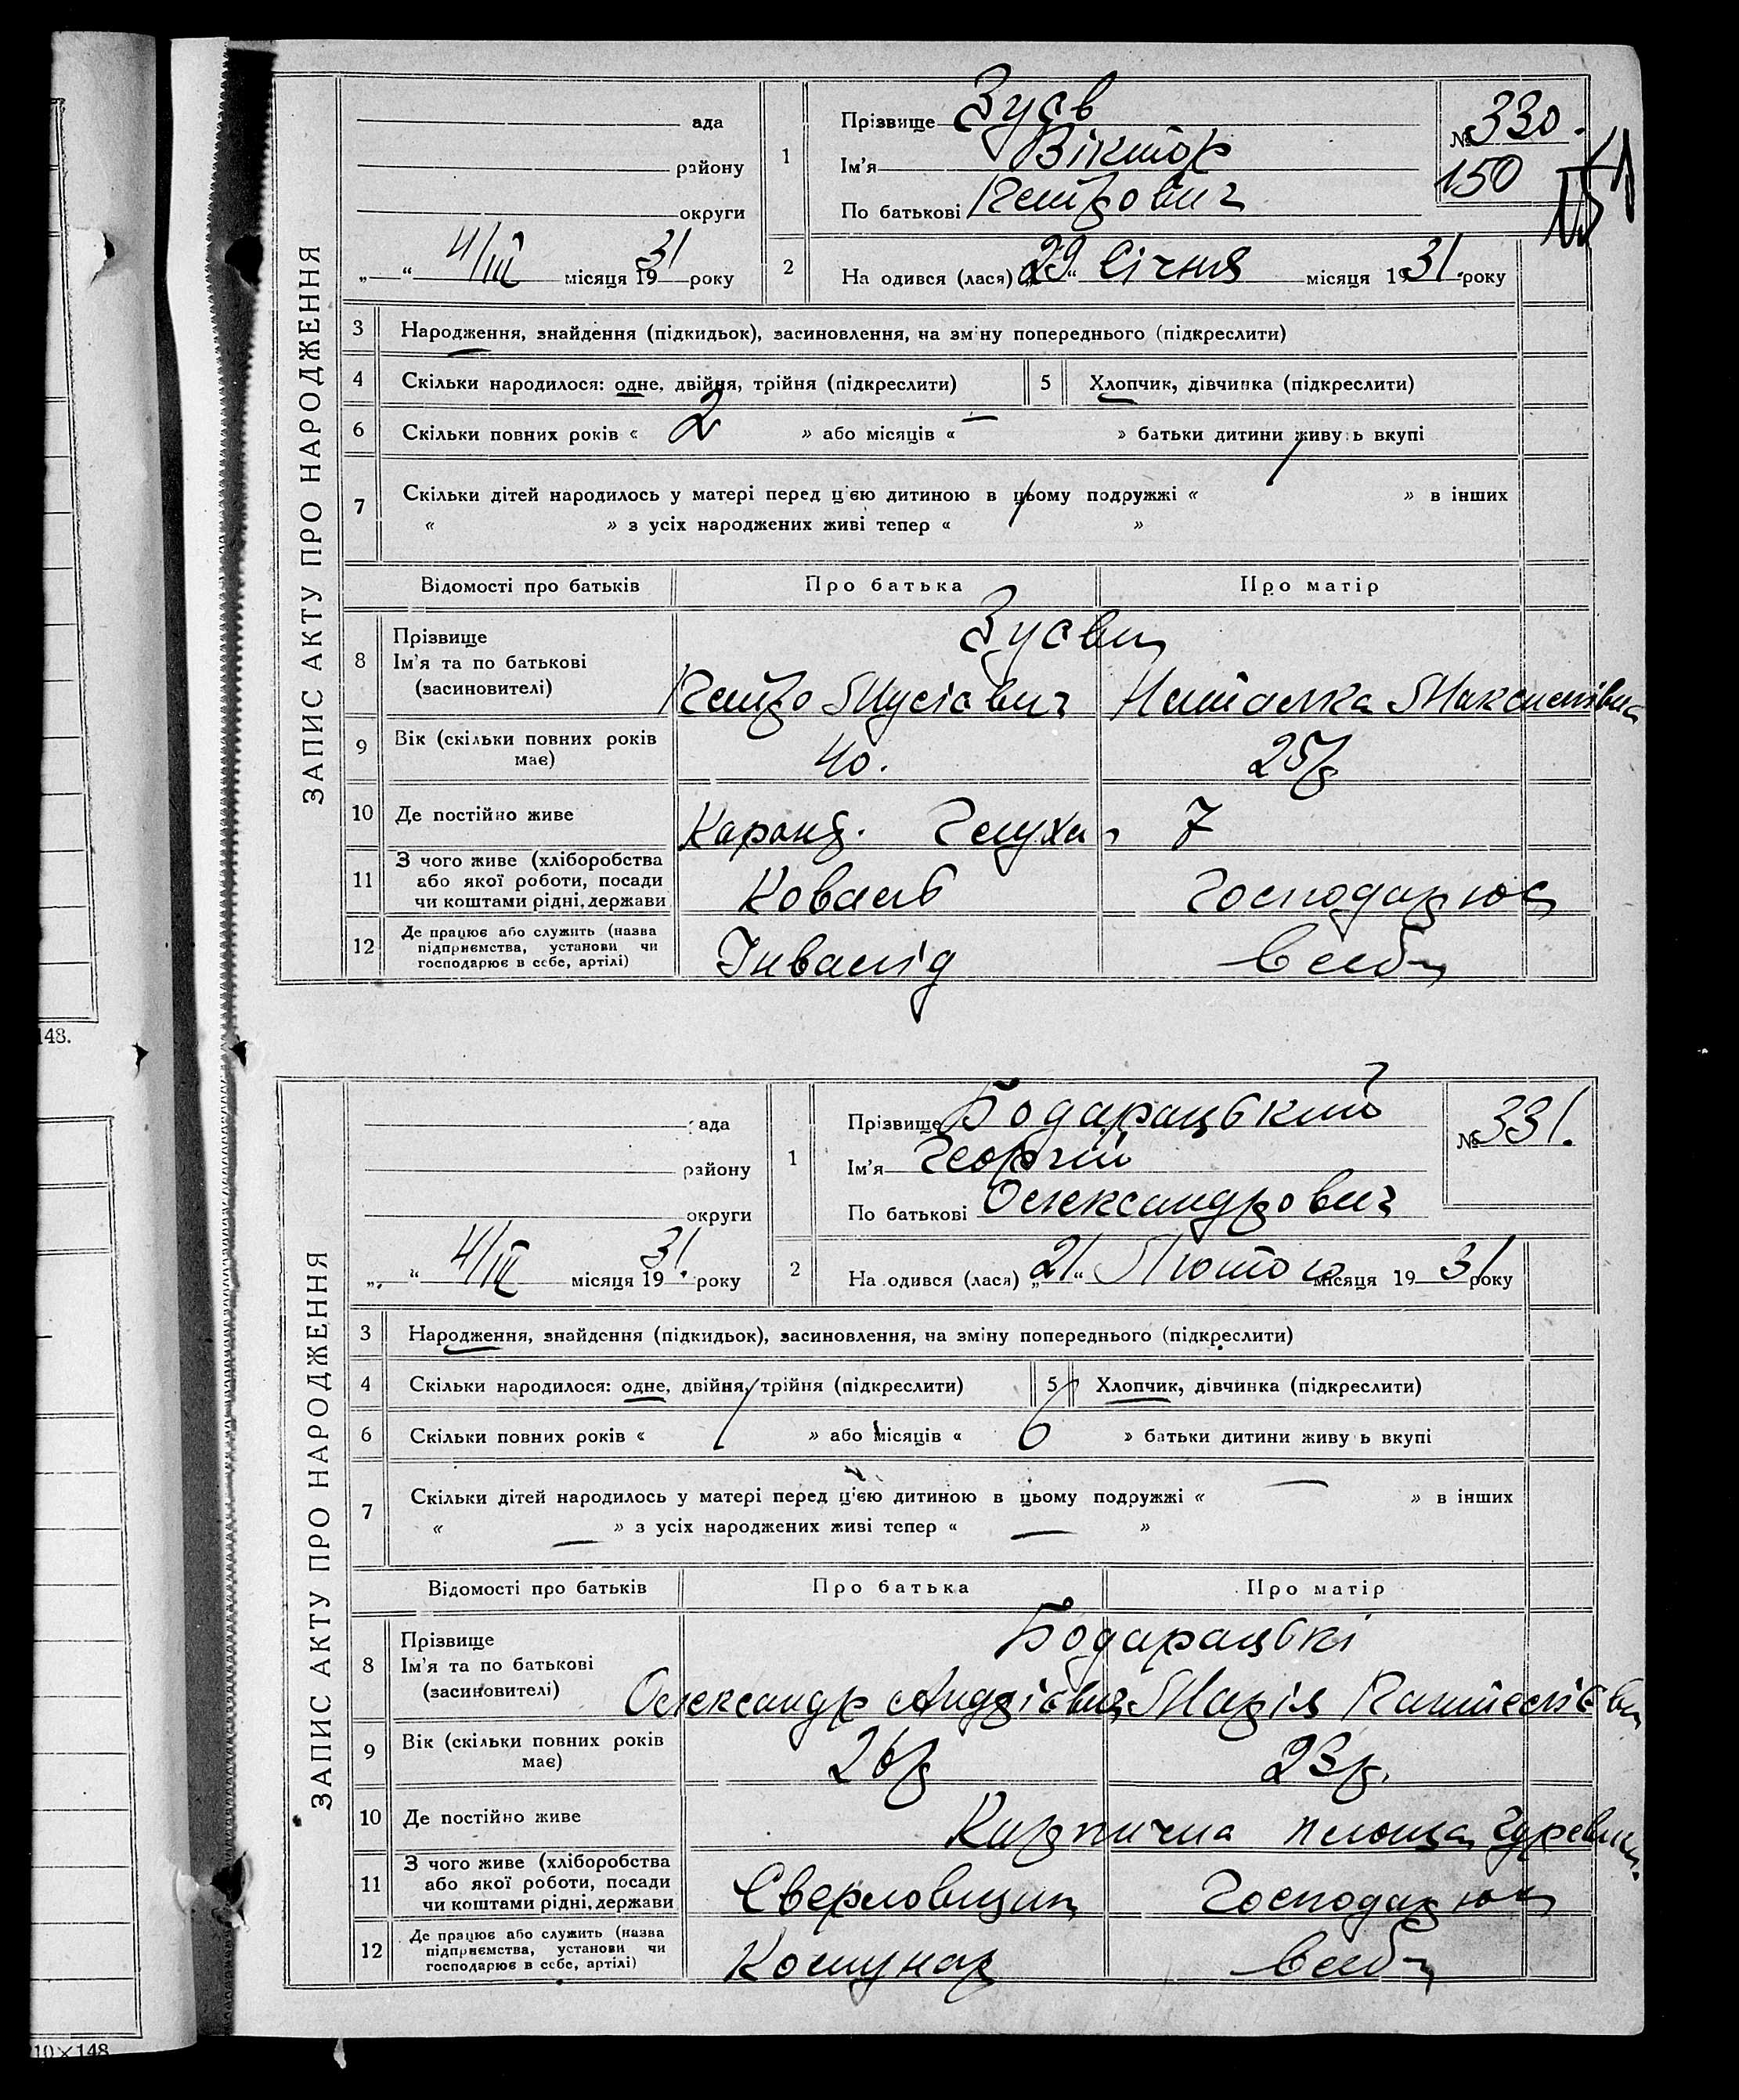 ЗАПИС АКТУ ПРО НАРОДЖЕННЯ
ада
району
округи
„ “ 4/III місяця 1931 року
1
Прізвище Зуєв
Ім'я Віктор
По батькові Петрович
№ 330.
150
2
На одився (лася) „29“ Січня місяця 1931. року
3 Народження, знайдення (підкидьок), засиновлення, на зміну попереднього (підкреслити)
4 Скільки народилося: одне, двійня, трійня (підкреслити)
5 Хлопчик, дівчинка (підкреслити)
6 Скільки повних років « 2 » або місяців « — » батьки дитини живуь вкупі
7 Скільки дітей народилось у матері перед цією дитиною в цьому подружжі « » в інших
« » з усіх народжених живі тепер « »
Відомості про батьків Про батька Про матір
8 Прізвище
Ім'я та по батькові
(засиновителі)
Зуєви
Петро Мусієвич Наталка Максимівна
9 Вік (скільки повних років має) 40. 25/р
10 Де постійно живе 7
11 З чого живе (хліборобства
або якої роботи, посади
чи коштами рідні, держави
Коваль Господарює
12 Де працює або служить (назва
підприємства, установи чи
господарює в себе, артілі)
Інвалід в себе
ЗАПИС АКТУ ПРО НАРОДЖЕННЯ
ада
району
округи
„ “ 4/III місяця 1931. року
1
Прізвище Бодарацький
Ім'я Георгій
По батькові Олександрович
№ 331.
2
На одився (лася) „21“ Лютого місяця 1931 року
3 Народження, знайдення (підкидьок), засиновлення, на зміну попереднього (підкреслити)
4 Скільки народилося: одне, двійня, трійня (підкреслити)
5 Хлопчик, дівчинка (підкреслити)
6 Скільки повних років « 1 » або місяців « 6 » батьки дитини живуь вкупі
7 Скільки дітей народилось у матері перед цією дитиною в цьому подружжі « — » в інших
« — » з усіх народжених живі тепер « — »
Відомості про батьків Про батька Про матір
8 Прізвище
Ім'я та по батькові
(засиновителі)
Бодарацькі
Олександр Андрієвич Марія Пантелієвн
9 Вік (скільки повних років має) 26/р 23/р.
10 Де постійно живе
Кирпична площа
11 З чого живе (хліборобства
або якої роботи, посади
чи коштами рідні, держави
Сверловщик Господарює
12 Де працює або служить (назва
підприємства, установи чи
господарює в себе, артілі)
Комунар в себе
148.
10×148